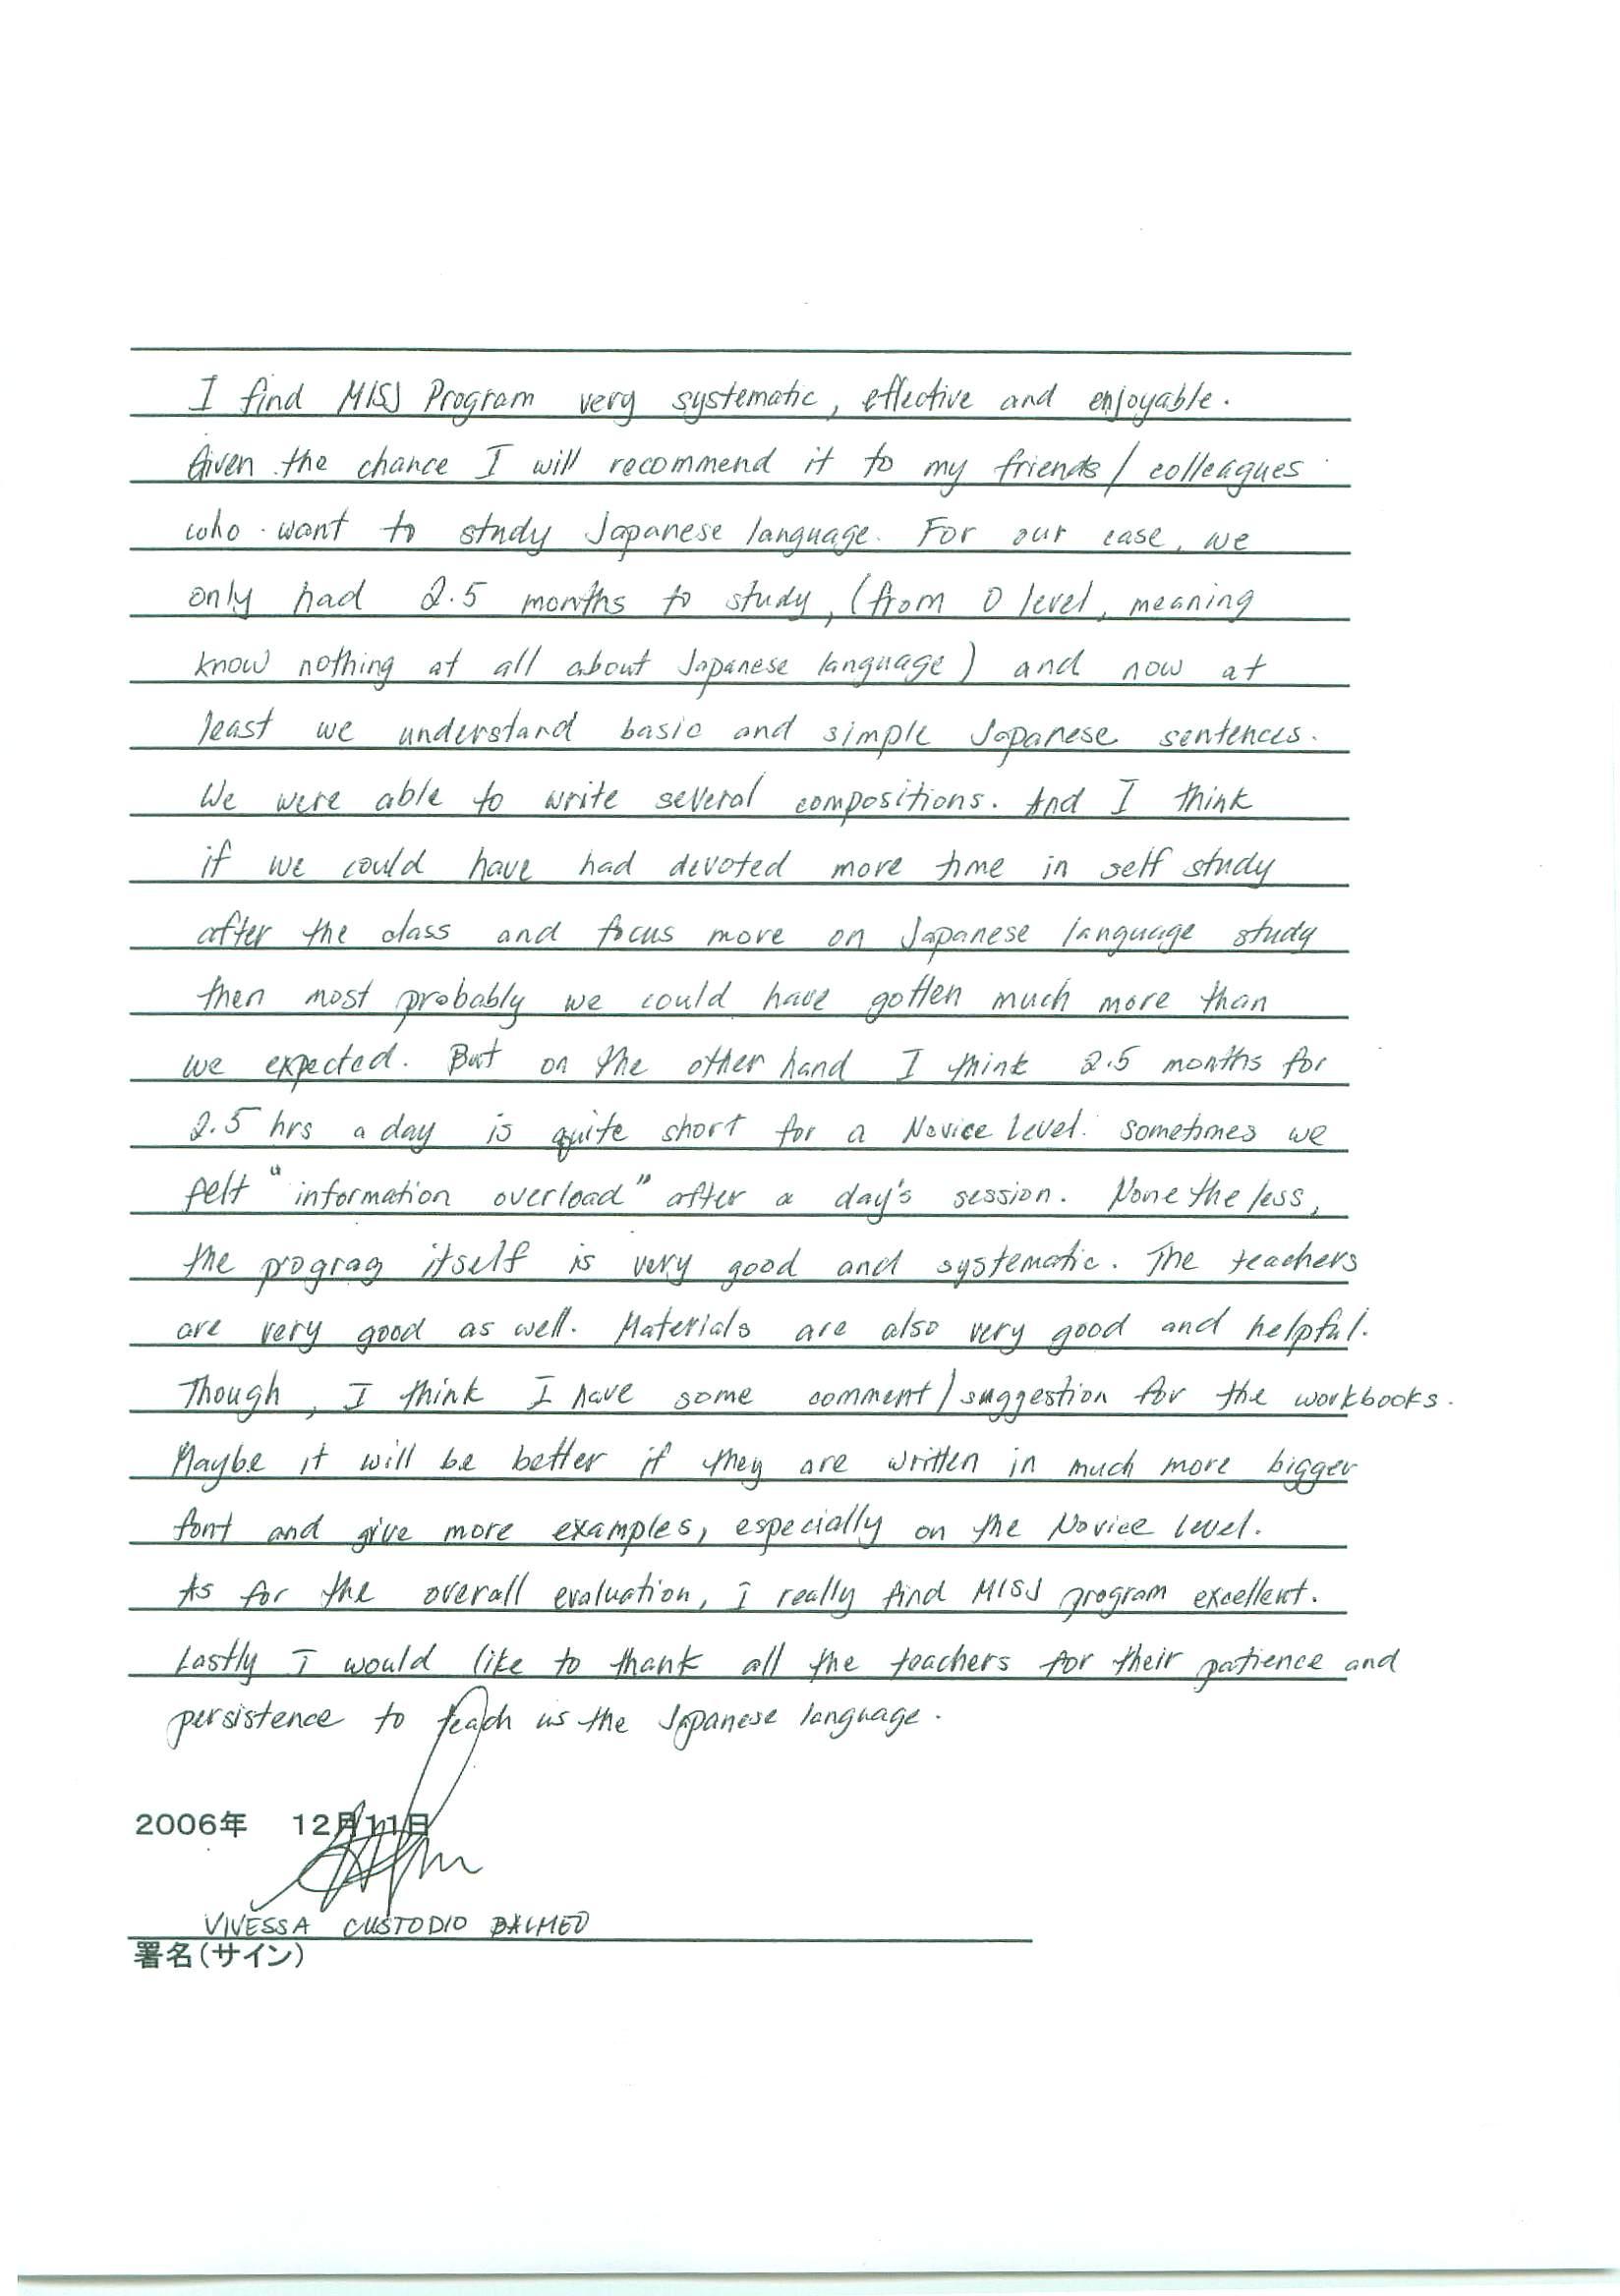 I find MISJ Program very systematic, effective and enjoyable.
Given the chance I will recommend it to my friends / colleagues
who want to study Japanese language. For our case, we
only had 2.5 months to study, (from 0 level, meaning
know nothing at all about Japanese language) and now at
least we understand basic and simple Japanese sentences.
We were able to write several compositions. And I think
if we could have had devoted more time in self study
after the class and focus more on Japanese language study
then most probably we could have gotten much more than
we expected. But on the other hand I think 2.5 months for
2.5 hrs a day is quite short for a Novice Level. Sometimes we
felt "information overload" after a day's session. None the less,
the prograg itself is very good and systematic. The teachers
are very good as well. Materials are also very good and helpful.
Though, I think I have some comment/suggestion for the workbooks.
Maybe it will be better if they are written in much more bigger
font and give more examples, especially on the Novice Level.
As for the overall evaluation, I really find MISJ program excellent.
Lastly I would like to thank all the teachers for their patience and
persistence to teach us the Japanese language.
2006年 12月11日
VIVESSA CUSTODIO BALMEO
署名(サイン)